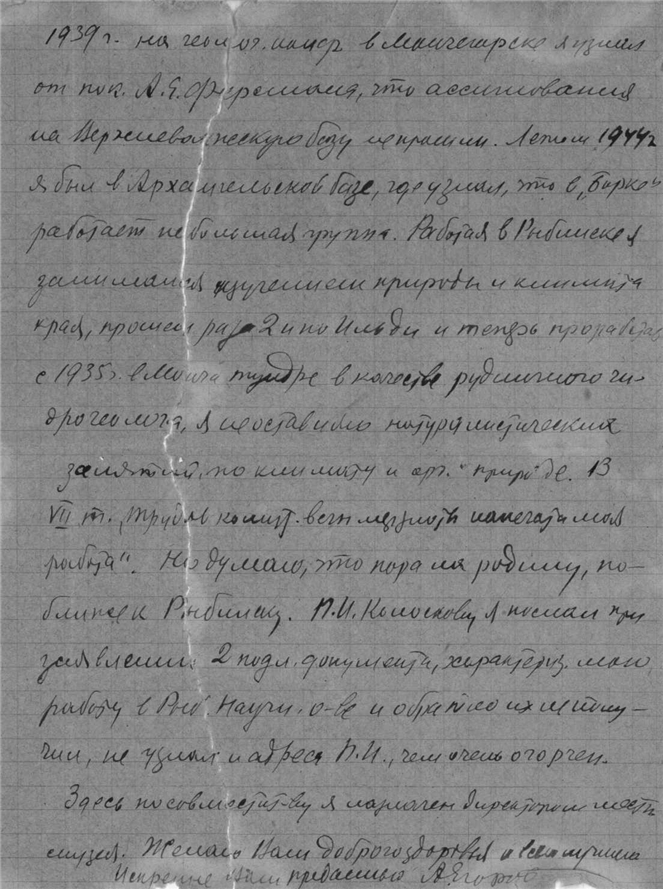 1939 г. на геолог. конфер. в Мончегорске я узнал
от пок. А.Е. Ферсмана, что ассигнования
на Верхневолжскую базу не прошли. Летом 1944 г
я был в Архангельской базе, где узнал, что в „Борке"
работает небольшая группа. Работая в Рыбинске я
занимался изучением природы и климата
края, прошел раза 2 и по Ильди и теперь
с 1935 г. в Монча тундре в качестве рудничного ги-
дрогеолога, я не оставляю натуралистических
занятий, по климату и орг. природе. В
VII т. „Трудов комит. вечн мерзлоты напечатана моя
работа". Но думаю, что пора на родину, по-
ближе к Рыбинску. П.И. Колоскову я послал при
заявлении 2 подл. документа, характериз. мою
работу в Рыб Научн. о-ве и обратно их не полу-
чил, не узнал и адреса П.И., чем очень огорчен.
Здесь по совместит-ву я назначен директором местн
музея. Желаю Вам доброго здоровья и всего лучшего
Искренне Вам преданный А Егоров